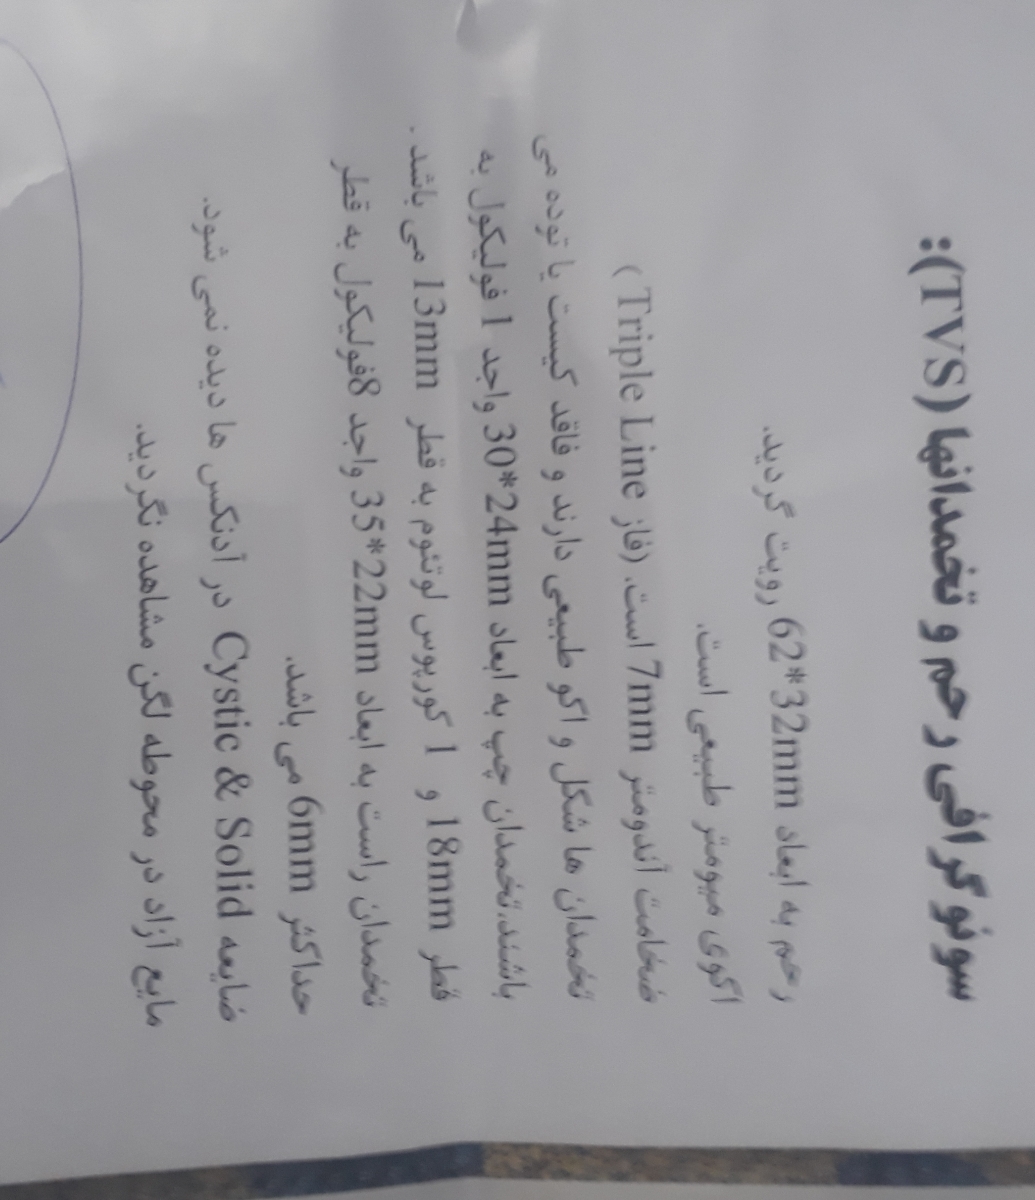 سونوگرافی رحم و تخمدانها (TVS):
رحم به ابعاد 62*32mm رویت گردید.
اکوی میومتر طبیعی است.
ضخامت آندومتر 7mm است. (فاز Triple Line )
تخمدان ها شکل و اکو طبیعی دارند و فاقد کیست یا توده می
باشند.تخمدان چپ به ابعاد 30*24mm واجد 1 فولیکول به
قطر 18mm و 1 کورپوس لوتئوم به قطر 13mm می باشد .
تخمدان راست به ابعاد 35*22mm واجد 8فولیکول به قطر
حداکثر 6mm می باشد.
ضایعه Cystic & Solid در آدنکس ها دیده نمی شود.
مایع آزاد در محوطه لگن مشاهده نگردید.